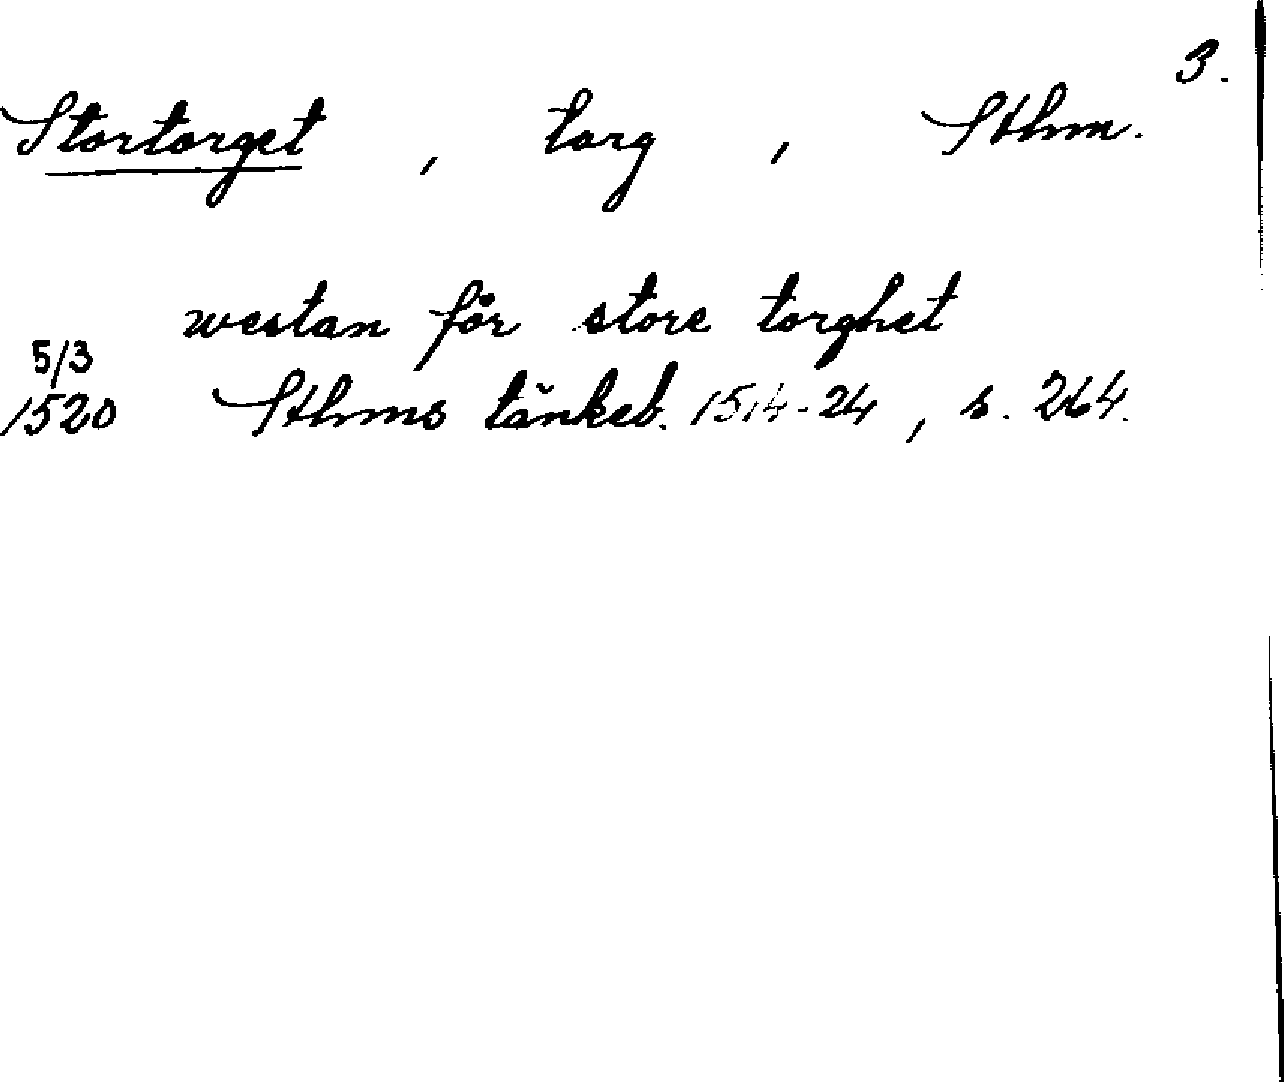 3.
Stortorget, torg, Sthm.
westan för store torghet
5/3
1520 Sthms tänkeb. 1514-24, s. 264.